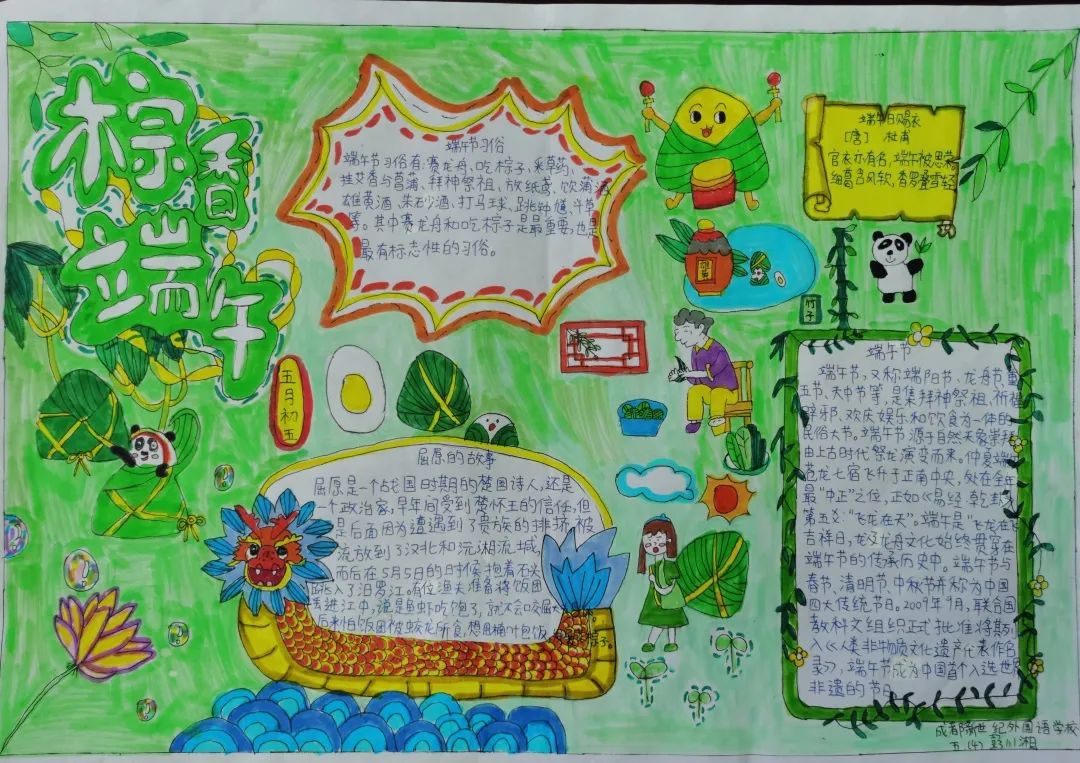 粽香端午
端午节习俗
端午节习俗有:赛龙舟、吃粽子、采草药、
挂艾香与菖蒲、拜神祭祖、放纸鸢、饮蒲酒
雄黄酒、朱砂酒、打马球、跳钟馗、斗草
等。其中赛龙舟和吃粽子是最重要,也是
最有标志性的习俗。
端午日赐衣
[唐] 杜甫
宫衣亦有名,端午被恩荣
细葛含风软,香罗叠雪轻
雄黄
竹子
五月初五
屈原的故事
屈原是一个战国时期的楚国诗人,还是
一个政治家,早年间受到楚怀王的信任,但
是后面因为遭遇到了贵族的排挤,被
流放到了汉北和沅湘流域
而后在5月5日的时候,抱着石头
跳入了汨罗江。有位渔夫准备将饭团
丢进江中,说是鱼虾吃饱了,就不会咬屈大夫
后来怕饭团被蛟龙所食,想用楠叶包饭,
粽子。
端午节
端午节,又称端阳节、龙舟节、重
五节、天中节等,是集拜神祭祖、祈福
辟邪、欢庆娱乐和饮食为一体的
民俗大节。端午节源于自然天象崇拜,
由上古时代祭龙演变而来。仲夏端午
苍龙七宿飞升于正南中央,处在全年
最“中正”之位,正如《易经·乾卦》
第五爻:“飞龙在天”。端午是“飞龙在天”
吉祥日,龙及龙舟文化始终贯穿在
端午节的传承历史中。端午节与
春节、清明节、中秋节并称为中国
四大传统节日。2009年9月,联合国
教科文组织正式批准将其列
入《人类非物质文化遗产代表作名
录》,端午节成为中国首个入选世界
非遗的节日
成都新世纪外国语学校
五(4) 彭川湘